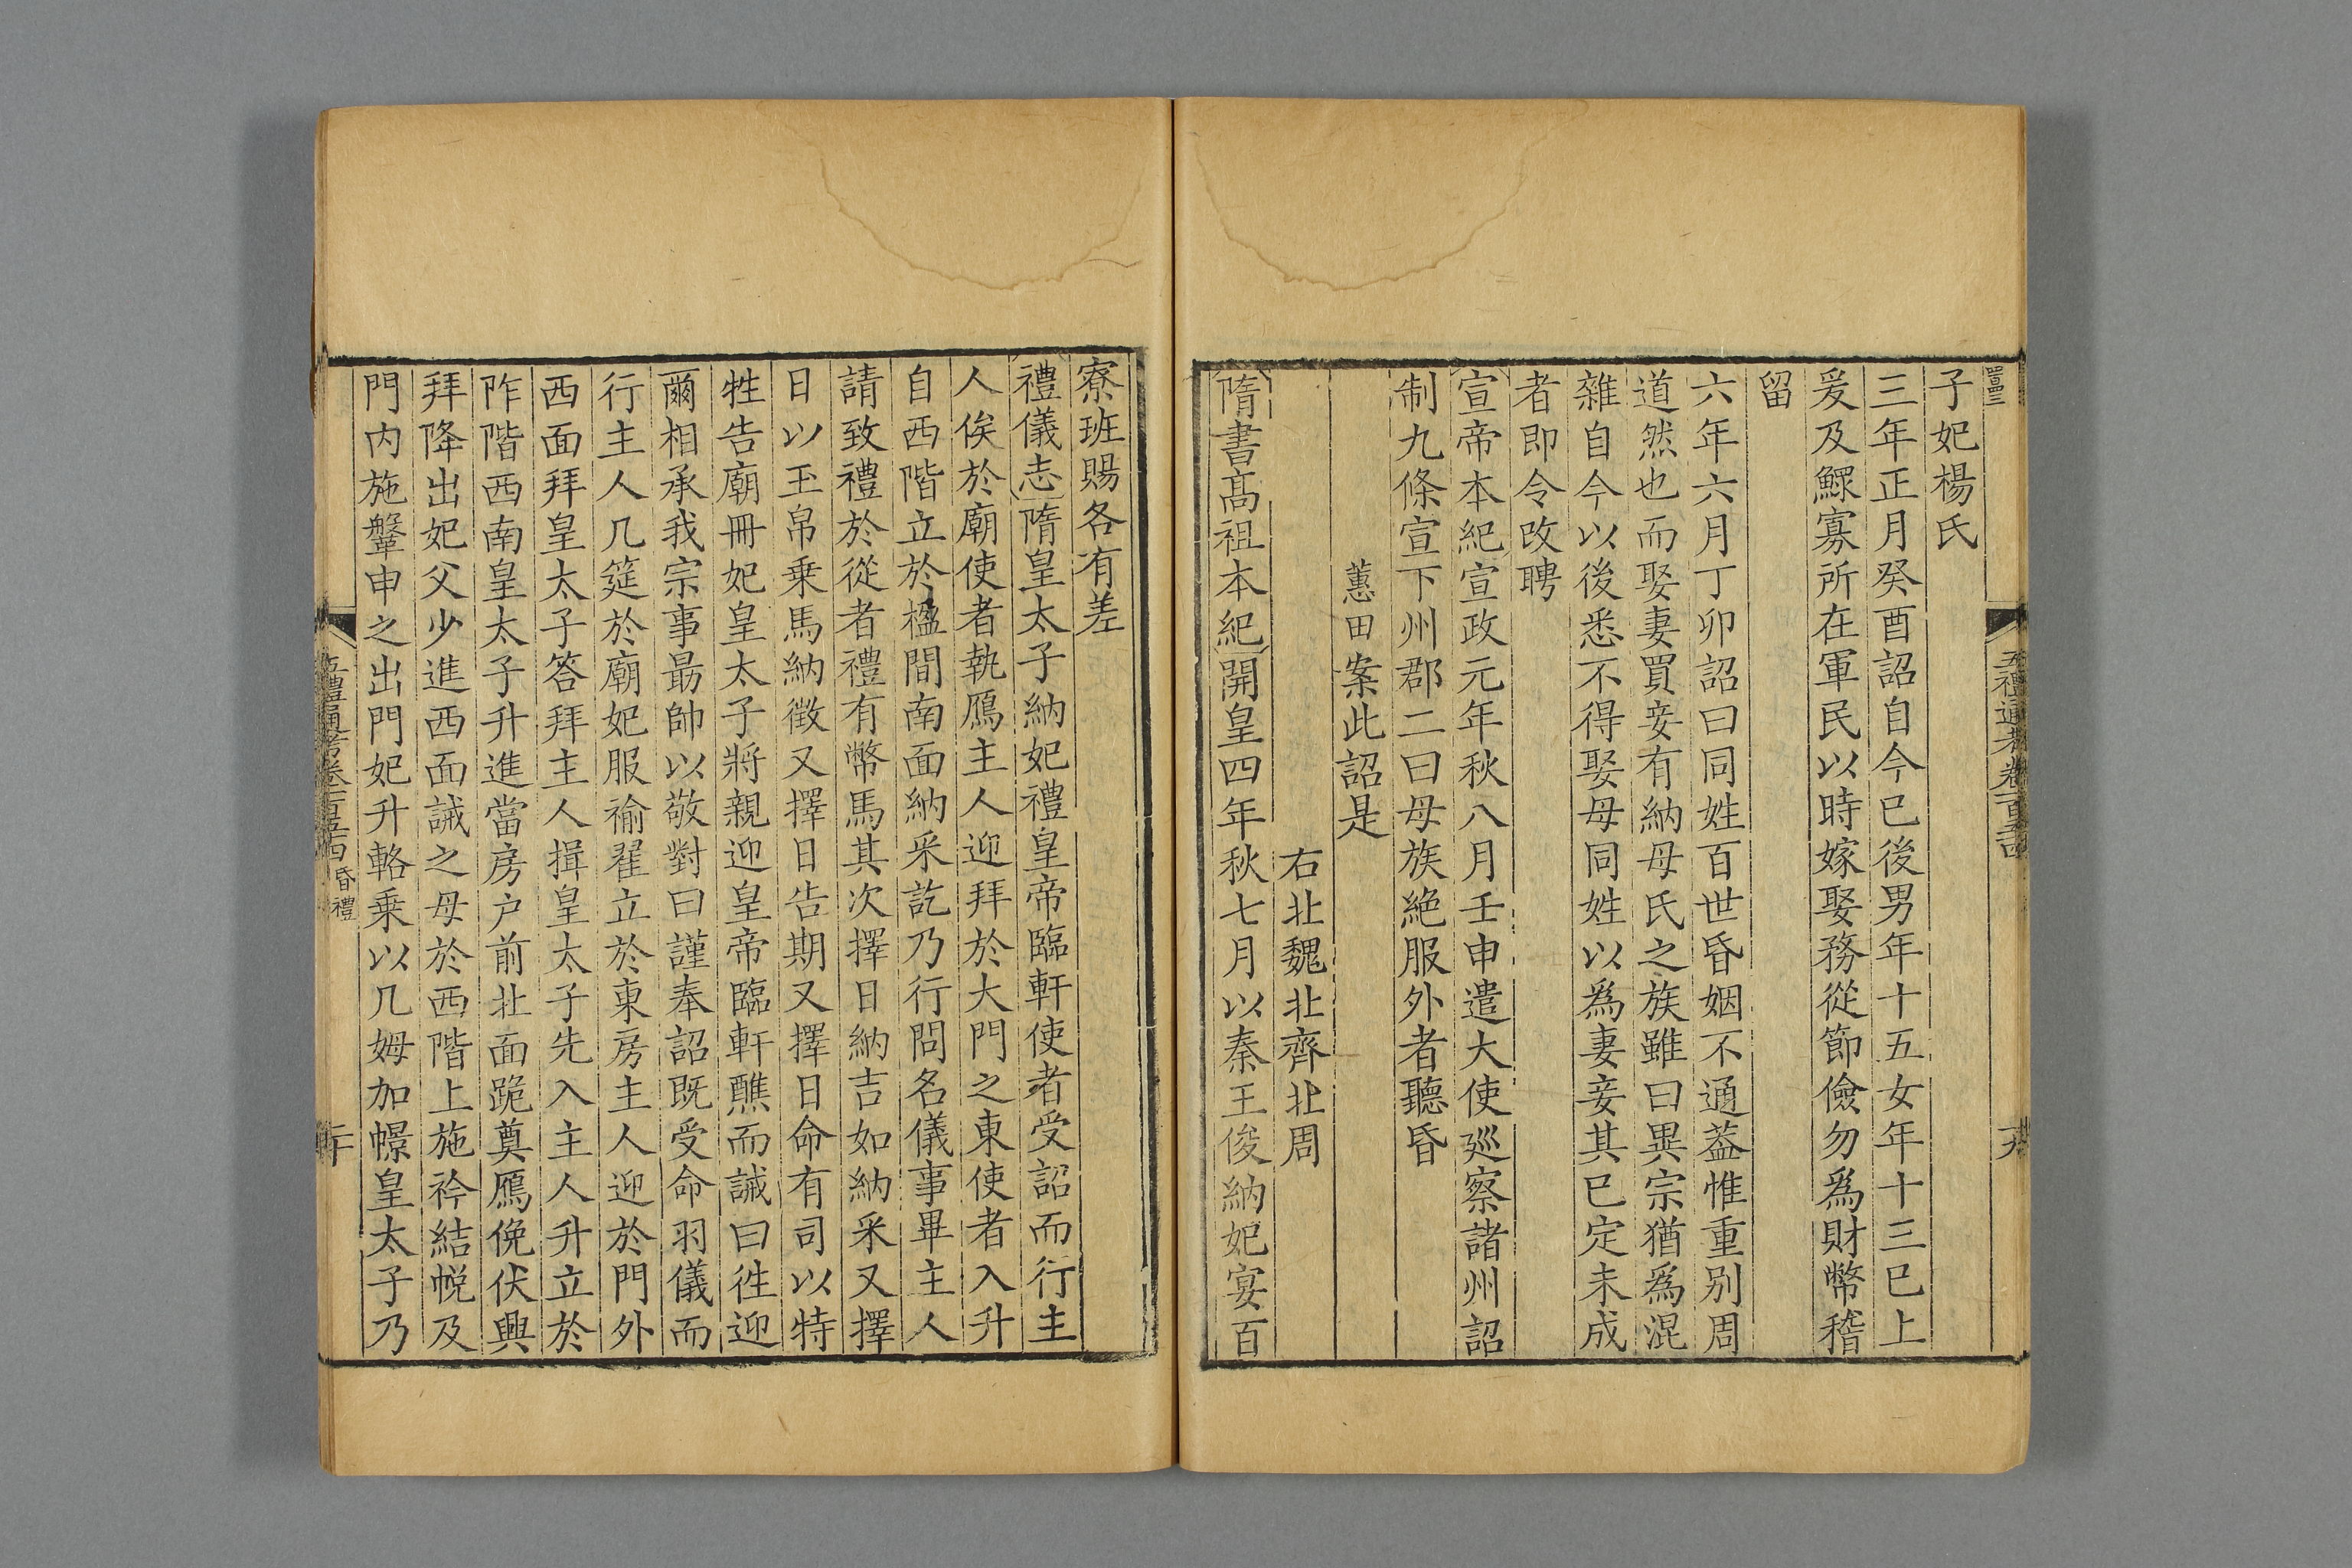 五禮通考卷一百五十四
子妃楊氏
三年正月癸酉詔自今已後男年十五女年十三已上
爰及鰥寡所在軍民以時嫁娶務從節儉勿爲財幣稽
留
六年六月丁卯詔曰同姓百世昏姻不通蓋惟重别周
道然也而娶妻買妾有納母氏之族雖曰異宗猶爲混
雜自今以後悉不得娶母同姓以爲妻妾其已定未成
者即令改聘
宣帝本紀宣政元年秋八月壬申遣大使廵察諸州詔
制九條宣下州郡二曰母族絶服外者聽昏
蕙田案此詔是
右北魏北齊北周
隋書髙祖本紀開皇四年秋七月以秦王俊納妃宴百
寮班賜各有差
禮儀志隋皇太子納妃禮皇帝臨軒使者受詔而行主
人俟於廟使者執鴈主人迎拜於大門之東使者入升
自西階立於楹間南面納采訖乃行問名儀事畢主人
請致禮於從者禮有幣馬其次擇日納吉如納采又擇
日以玉帛乗馬納徵又擇日告期又擇日命有司以特
牲告廟冊妃皇太子將親迎皇帝臨軒醮而誡曰徃迎
爾相承我宗事朂帥以敬對曰謹奉詔既受命羽儀而
行主人几筵於廟妃服褕翟立於東房主人迎於門外
西面拜皇太子答拜主人揖皇太子先入主人升立於
阼階西南皇太子升進當房户前北面跪奠鴈俛伏興
拜降出妃父少進西面誡之母於西階上施衿結帨及
門内施鞶申之出門妃升輅乗以几姆加幜皇太子乃
五禮通考卷一百五十四 昏禮
二十